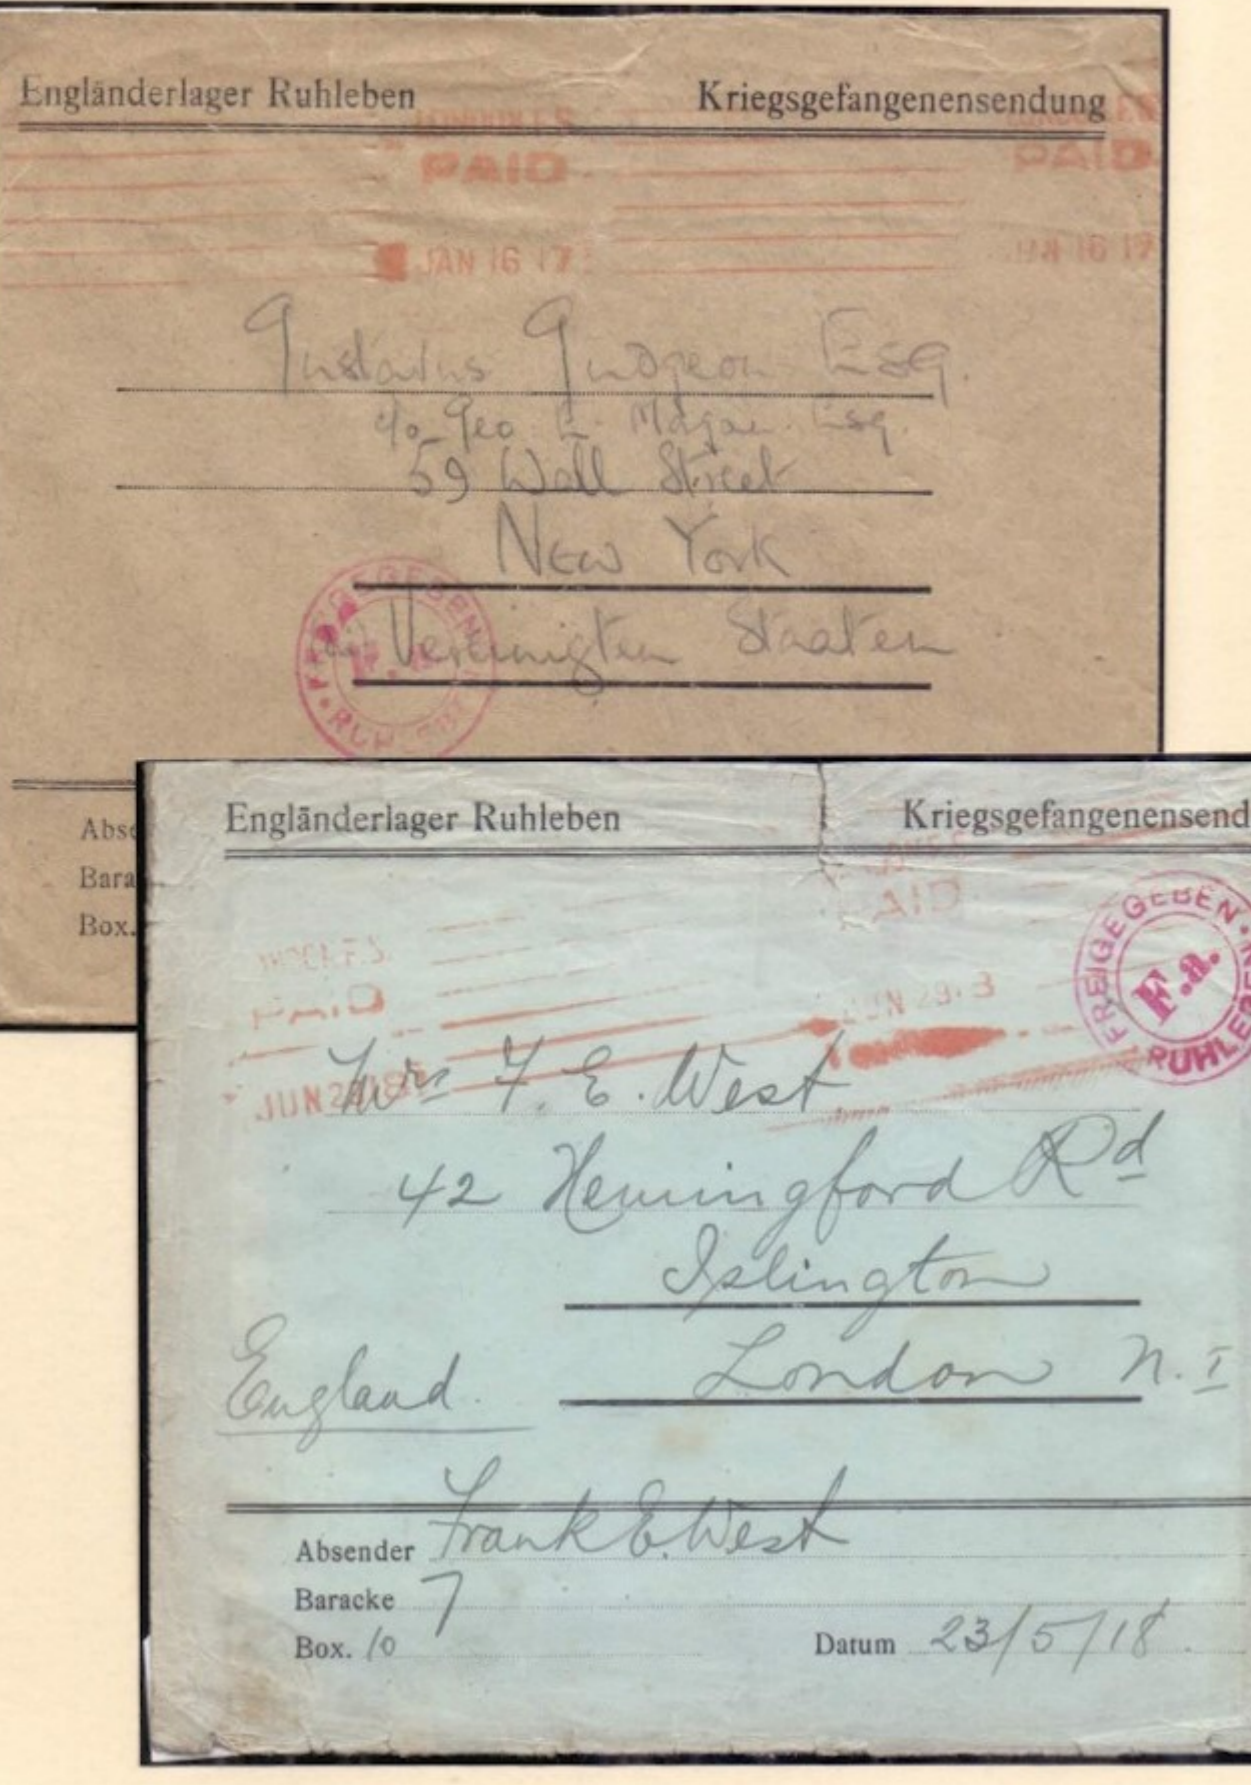 Engländerlager Ruhleben Kriegsgefangenensendung
LONDON F.S PAID JAN 16 17
PAID 16 17
Gustavus Gudgeon Esq.
c/o Geo Esq.
59 Wall Street
New York
Vereinigten Staaten
FREIGEGEBEN RUHLEBEN
Abse
Bara
Box.
Engländerlager Ruhleben Kriegsgefangenensend
PAID
AID
FREIGEGEBEN RUHLEBE
F.a.
JUN 29
JUN 2 18
Mrs F. E. West
42 Hemingford Rd
Islington
England. London N. I
Absender Frank E. West
Baracke 7
Box. 10 Datum 23/5/18.